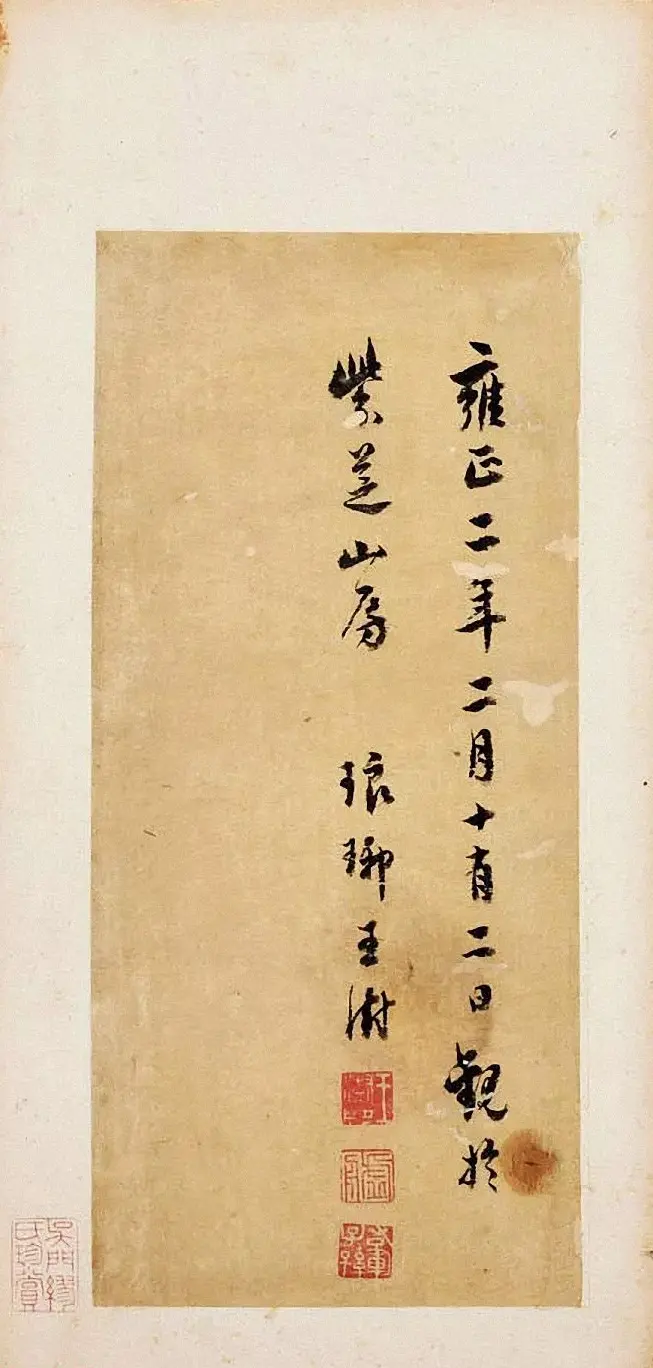 雍正二年二月十有二日觀於
紫芝山房 琅琊王澍
吳門繆
氏珍賞